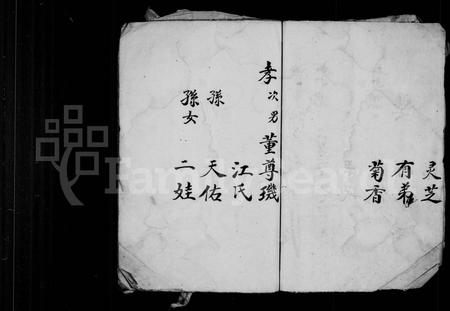 灵芝
有弟
菊香
孝次男董尊璣
江氏
孫天佑
孫女二娃